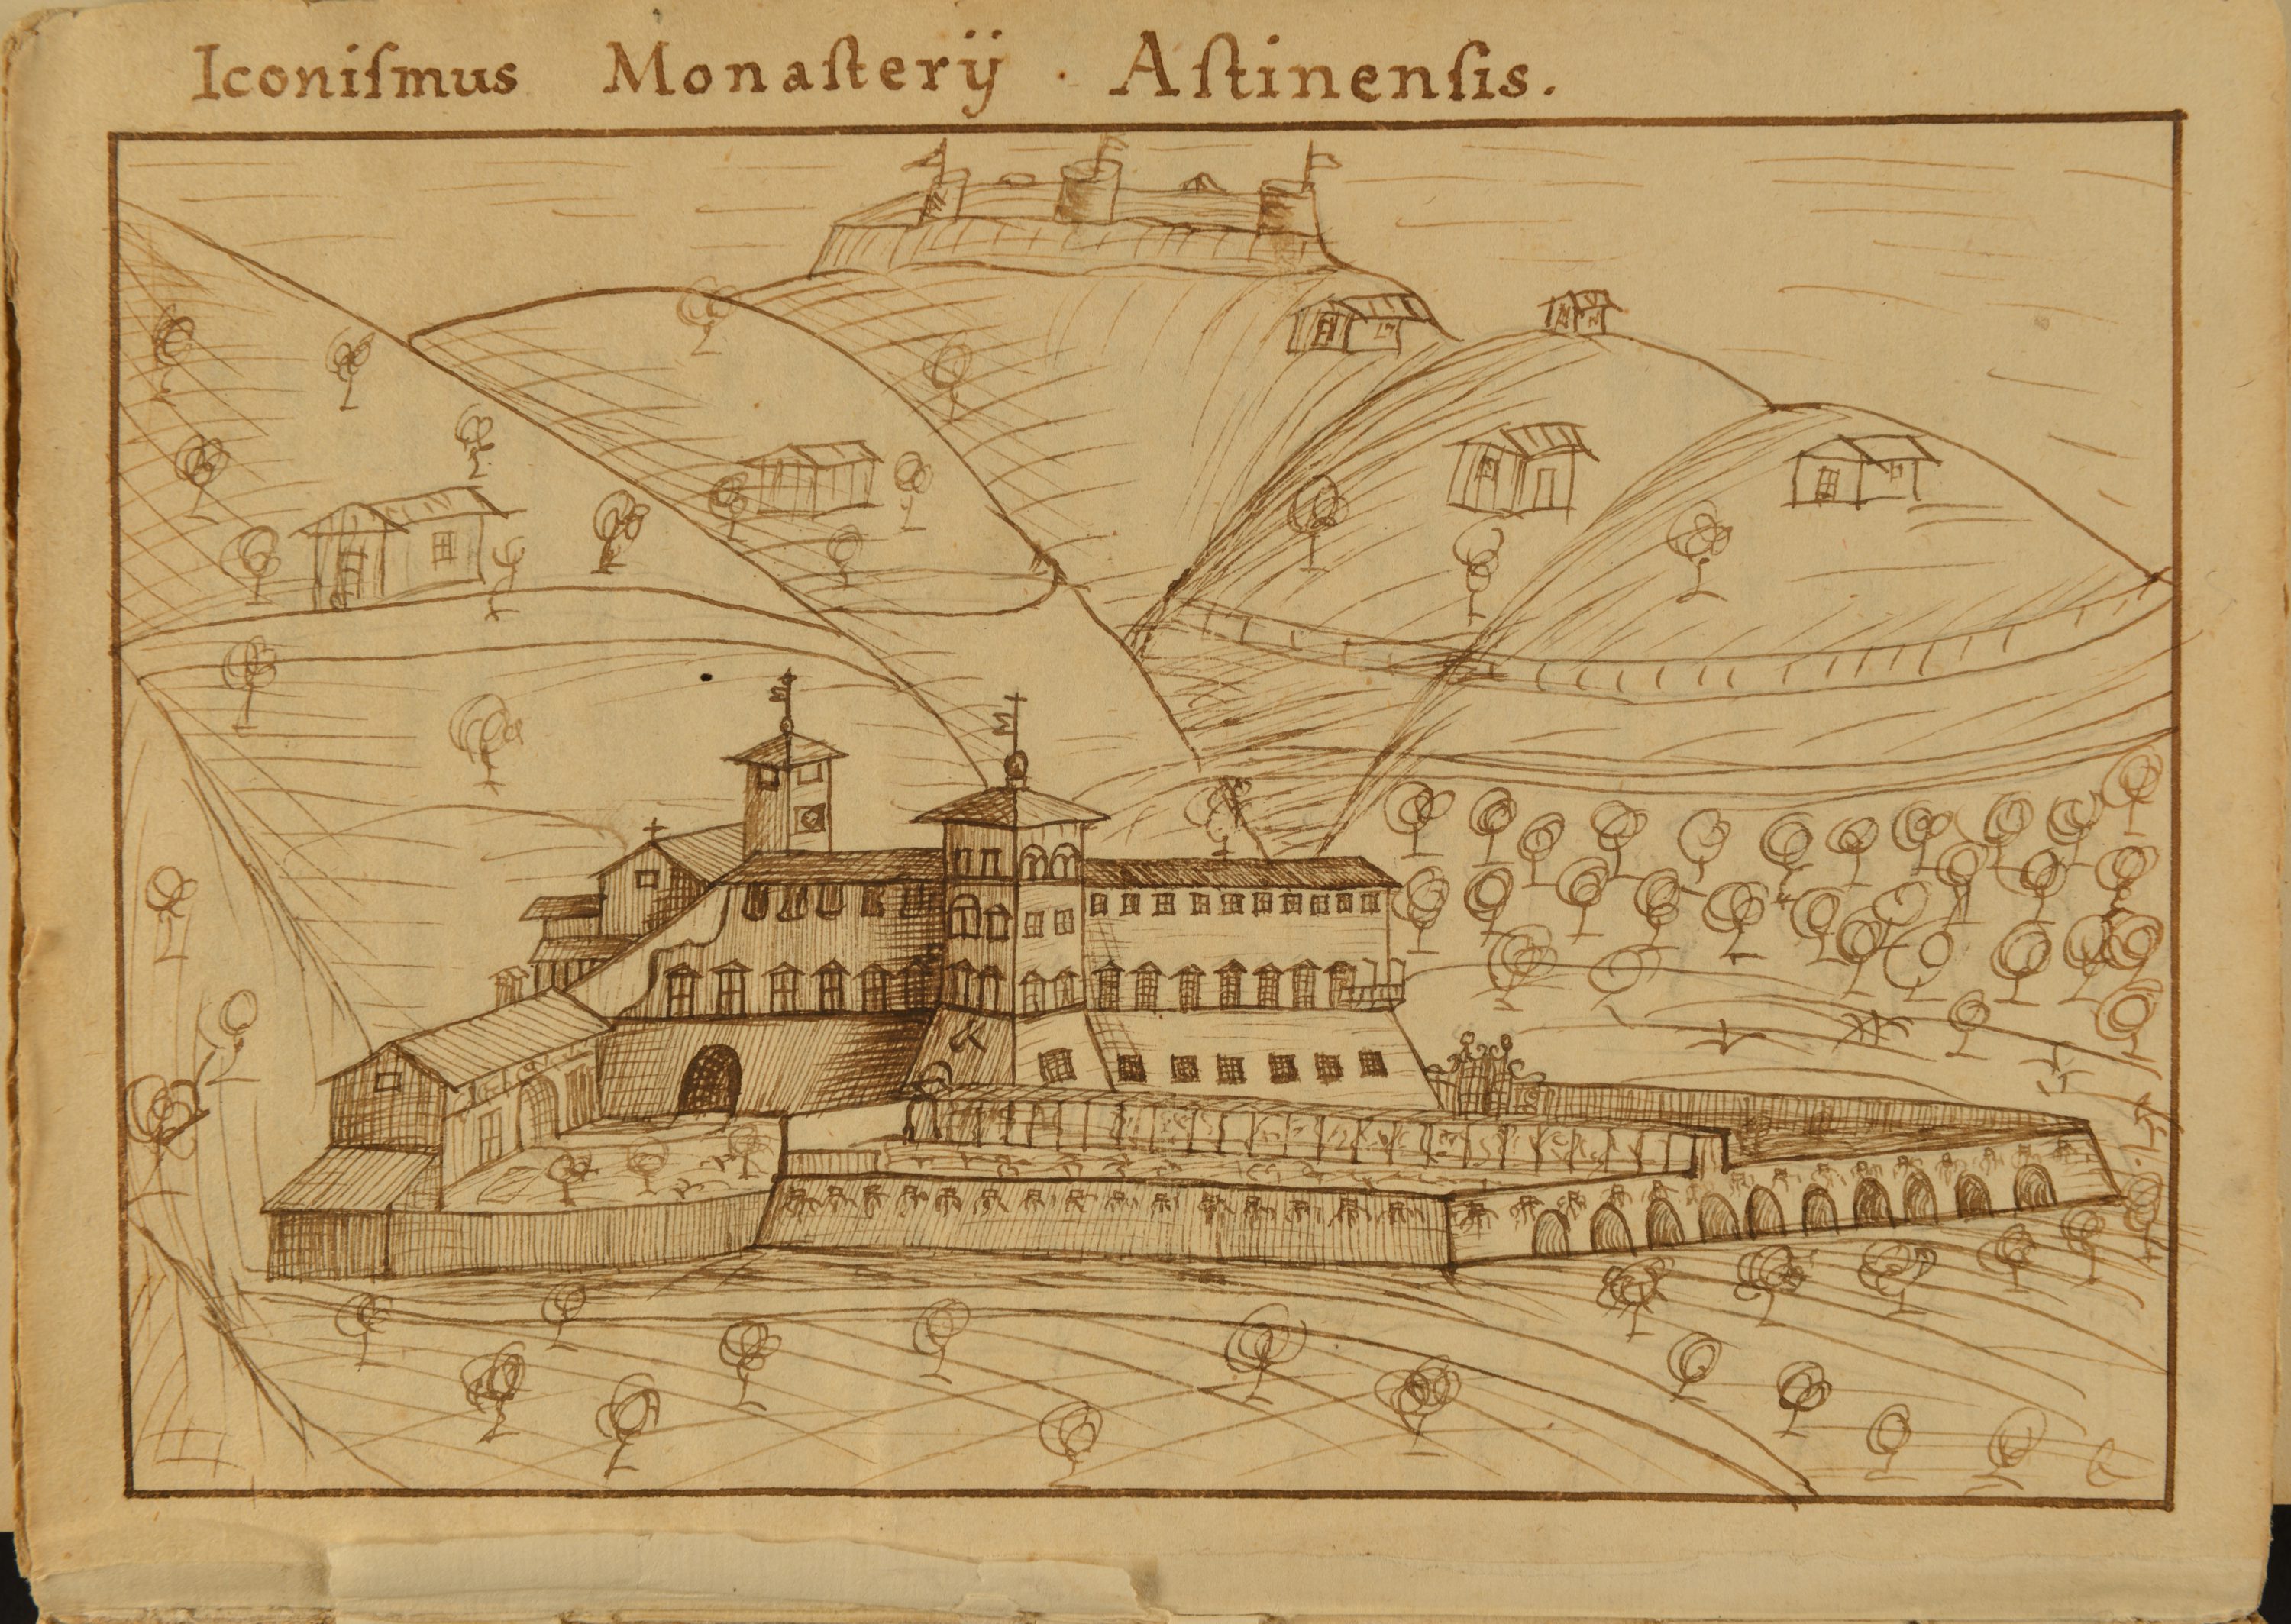 Iconiſmus Monaſterij · Aſtinenſis.